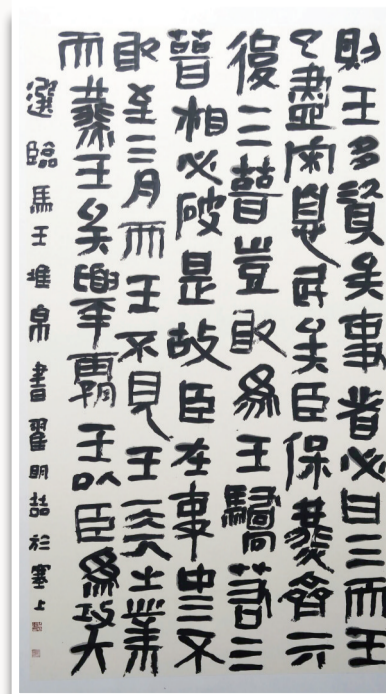 則王多資矣事者必曰三而王
盡息民矣臣保燕齊
復三晉豈敢為王驕若三
晉相必破是故臣在事中三不
敢至三月而王不見王天下之業
而燕王矣霸王以臣為大
選臨馬王堆帛書翟明喆於塞上